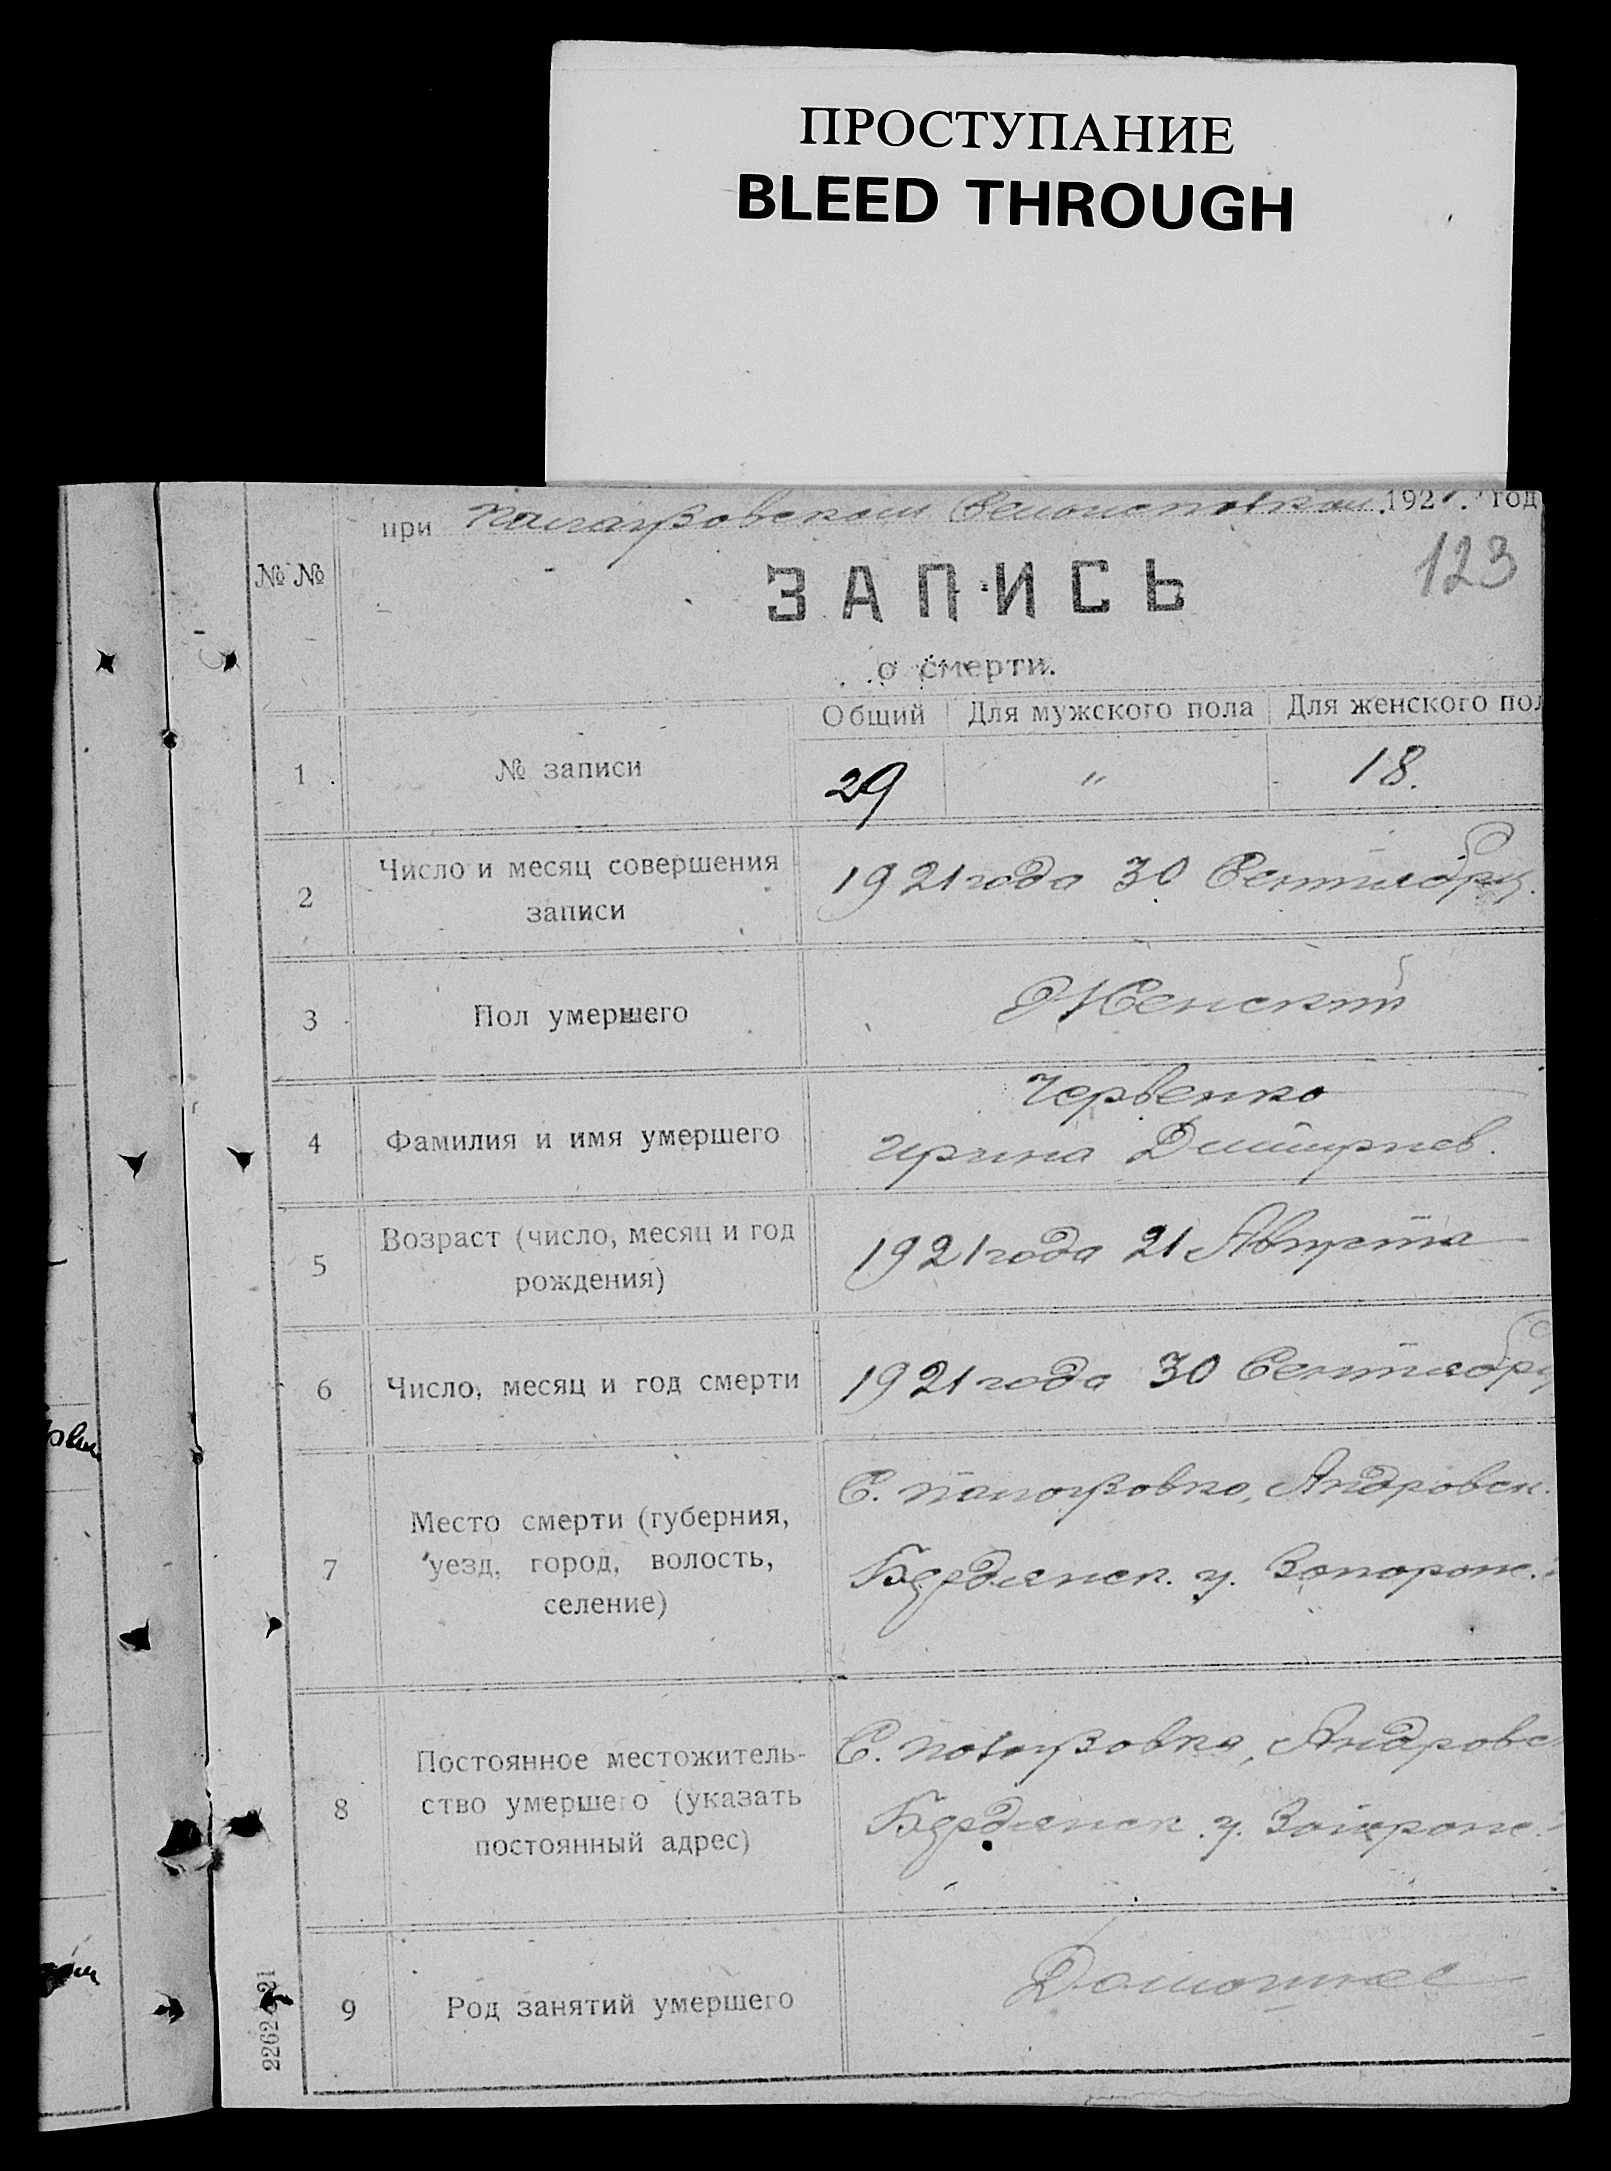 ПРОСТУПАНИЕ
BLEED THROUGH
при 1921. год
123
№ №
ЗАПИСЬ
о смерти.
Общий Для мужского пола Для женского пол
1 № записи 29 " 18.
2 Число и месяц совершения
записи
1921 года 30 Сентября.
3 Пол умершего Женский
4 Фамилия и имя умершего
Червенко
Ирина Дмитриев.
5 Возраст (число, месяц и год
рождения)
1921 года 21 Августа
6 Число, месяц и год смерти 1921 года 30 Сентября
7 Место смерти (губерния,
уезд, город, волость,
селение)
С. Андровск.
Бердянск. у. Запорож.
8 Постоянное местожитель-
ство умершего (указать
постоянный адрес)
С. Андровс
Бердянск. у. Запорож.
9 Род занятий умершего
2262